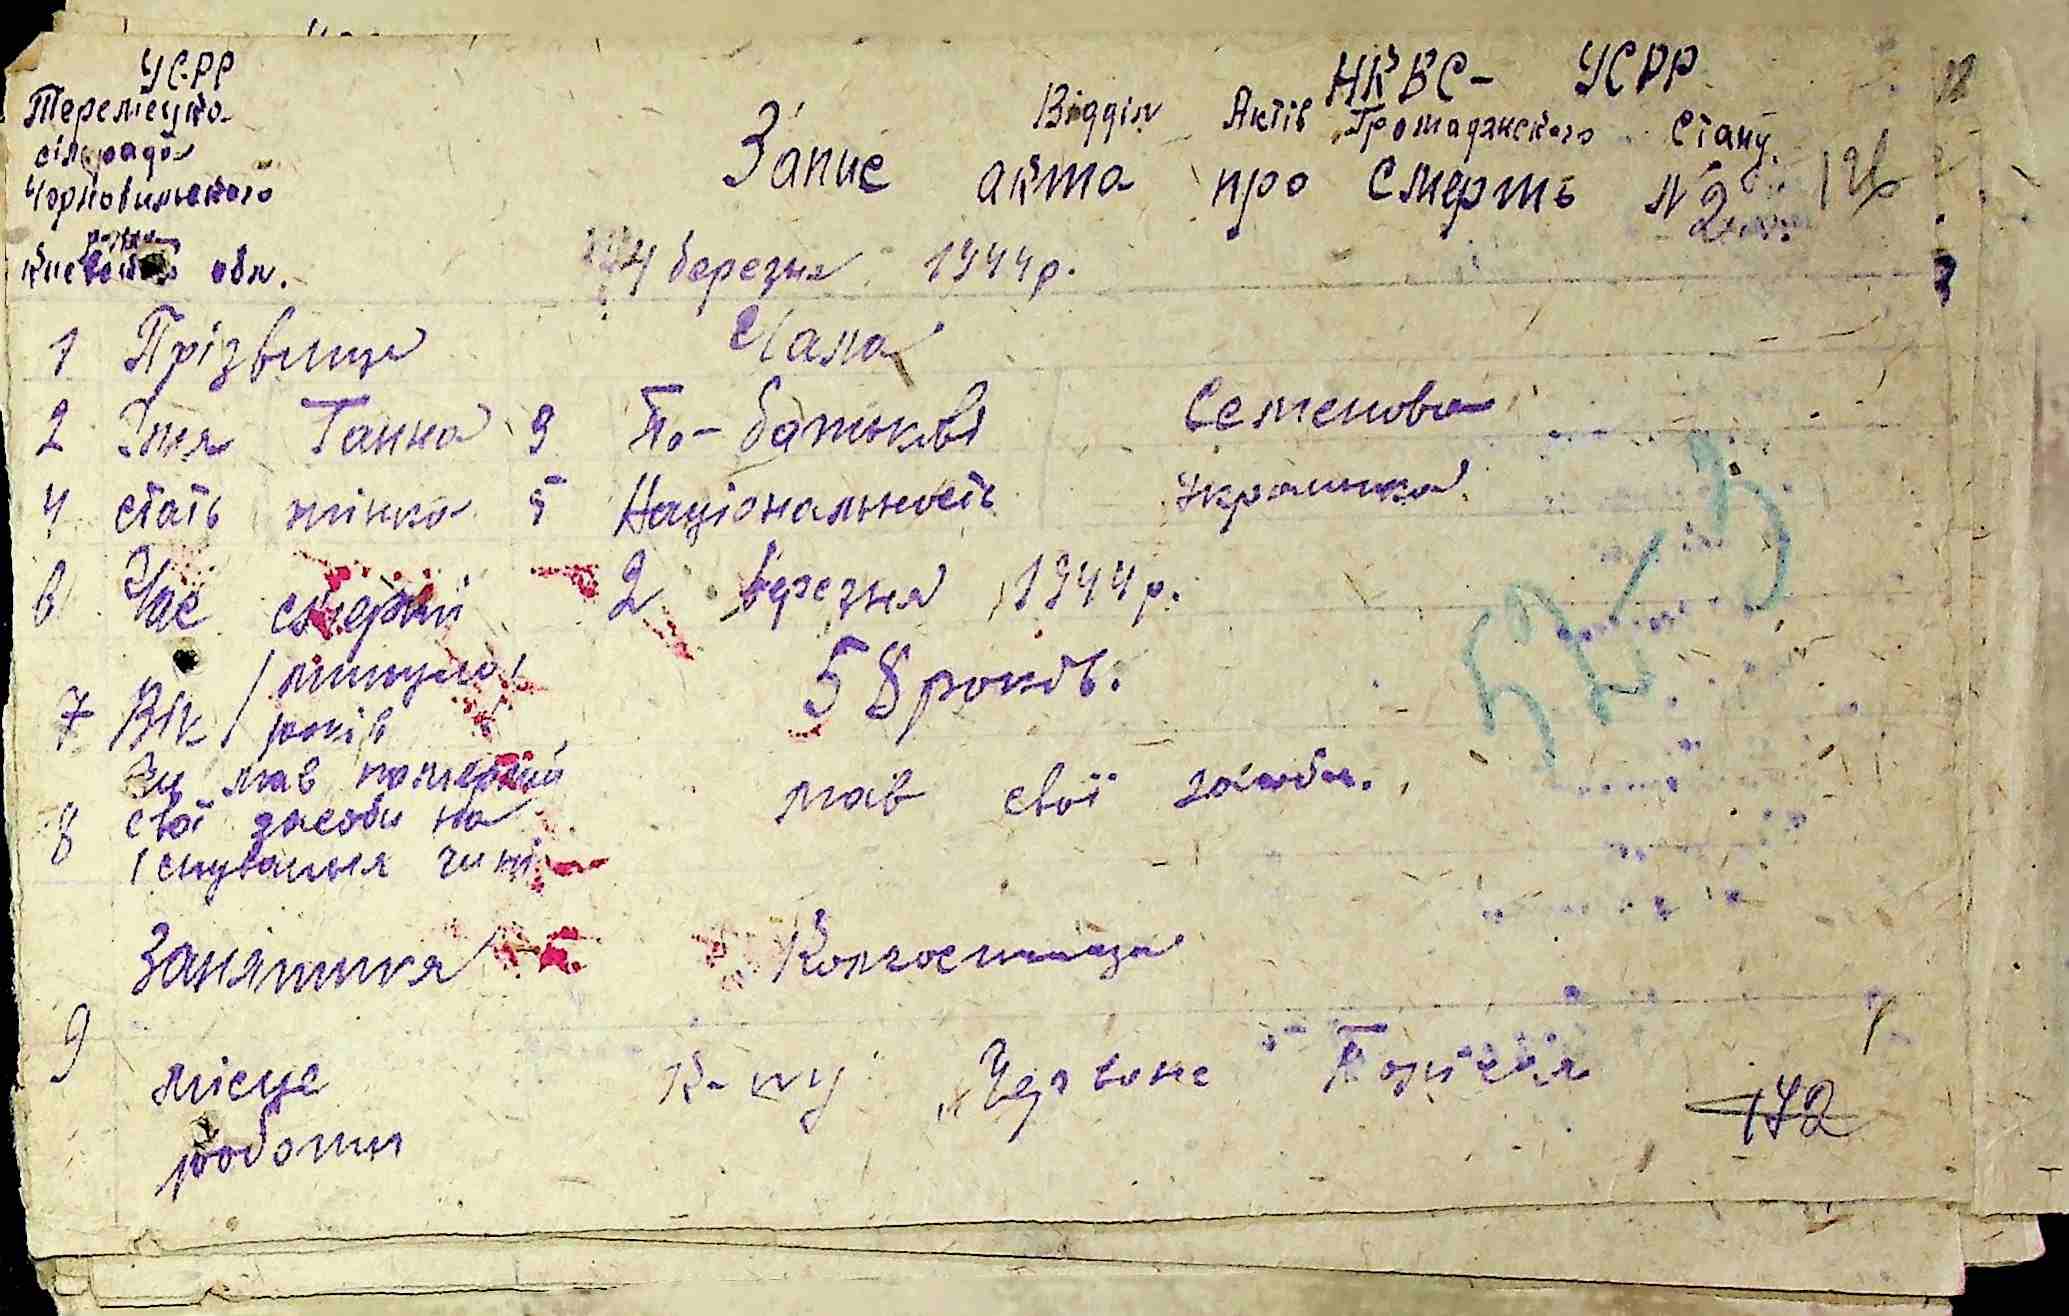 УСРР
НКВС - УСРР
Теремецка
Відділ Актів Громадянського Стану.
сільрада
Запис акта про смерть № 2
Чорнобильського
Києвської обл.
4 березня 1944 р.
1 Прізвище
2 Імя Ганна 3 По-батькові Семенова
4 стать жінка 5 Національность Українка
6 Час смерти 2 березня 1944 р.
7 Вік / минуло років 58 років.
8 Чи мав померший свої засоби на існування чи ні мав свої засоби.
9 Заняття Колгоспниця
місце роботи К-пу "Червоне Поліссья
172